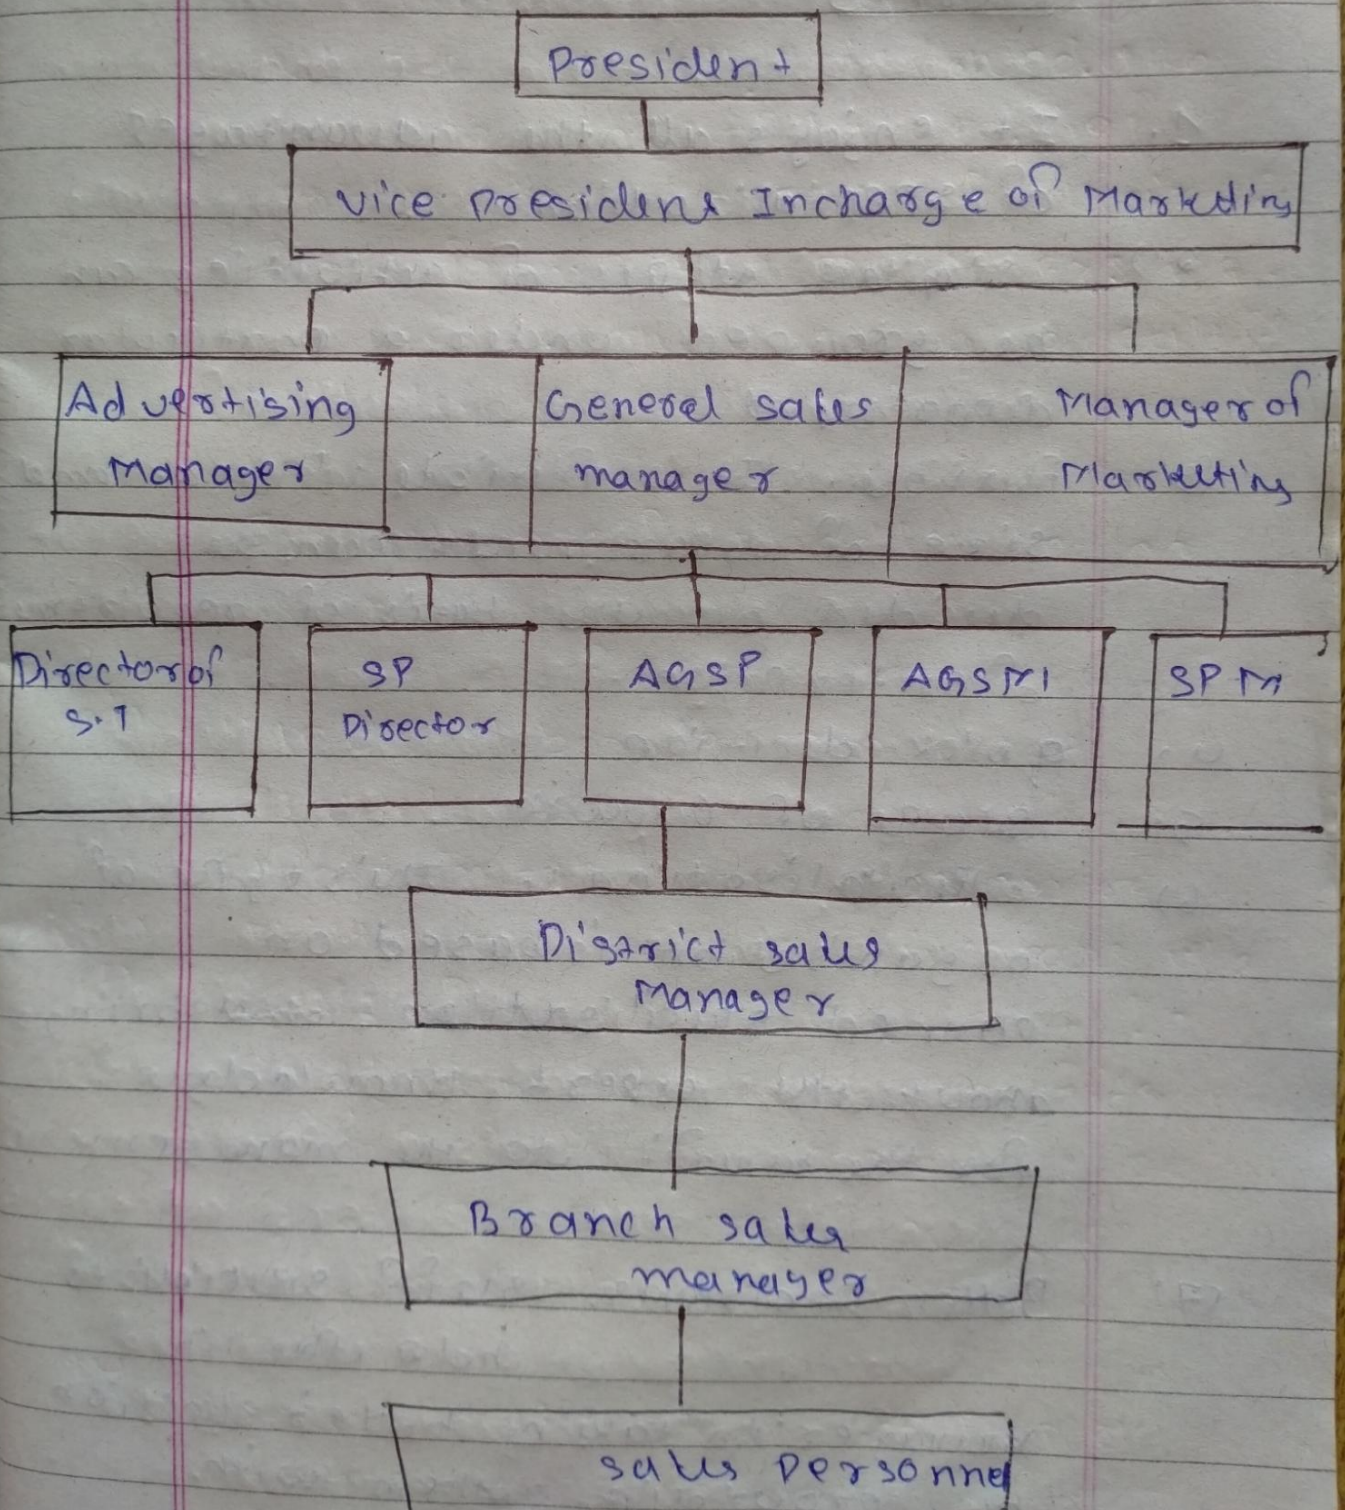 President
Vice President Incharge of Marketing
Advertising
Manager
General sales
manager
Manager of
Marketing
Director of
S.T
SP
Director
AGSP
AGSM
SPM
District sales
Manager
Branch sales
manager
sales personnel